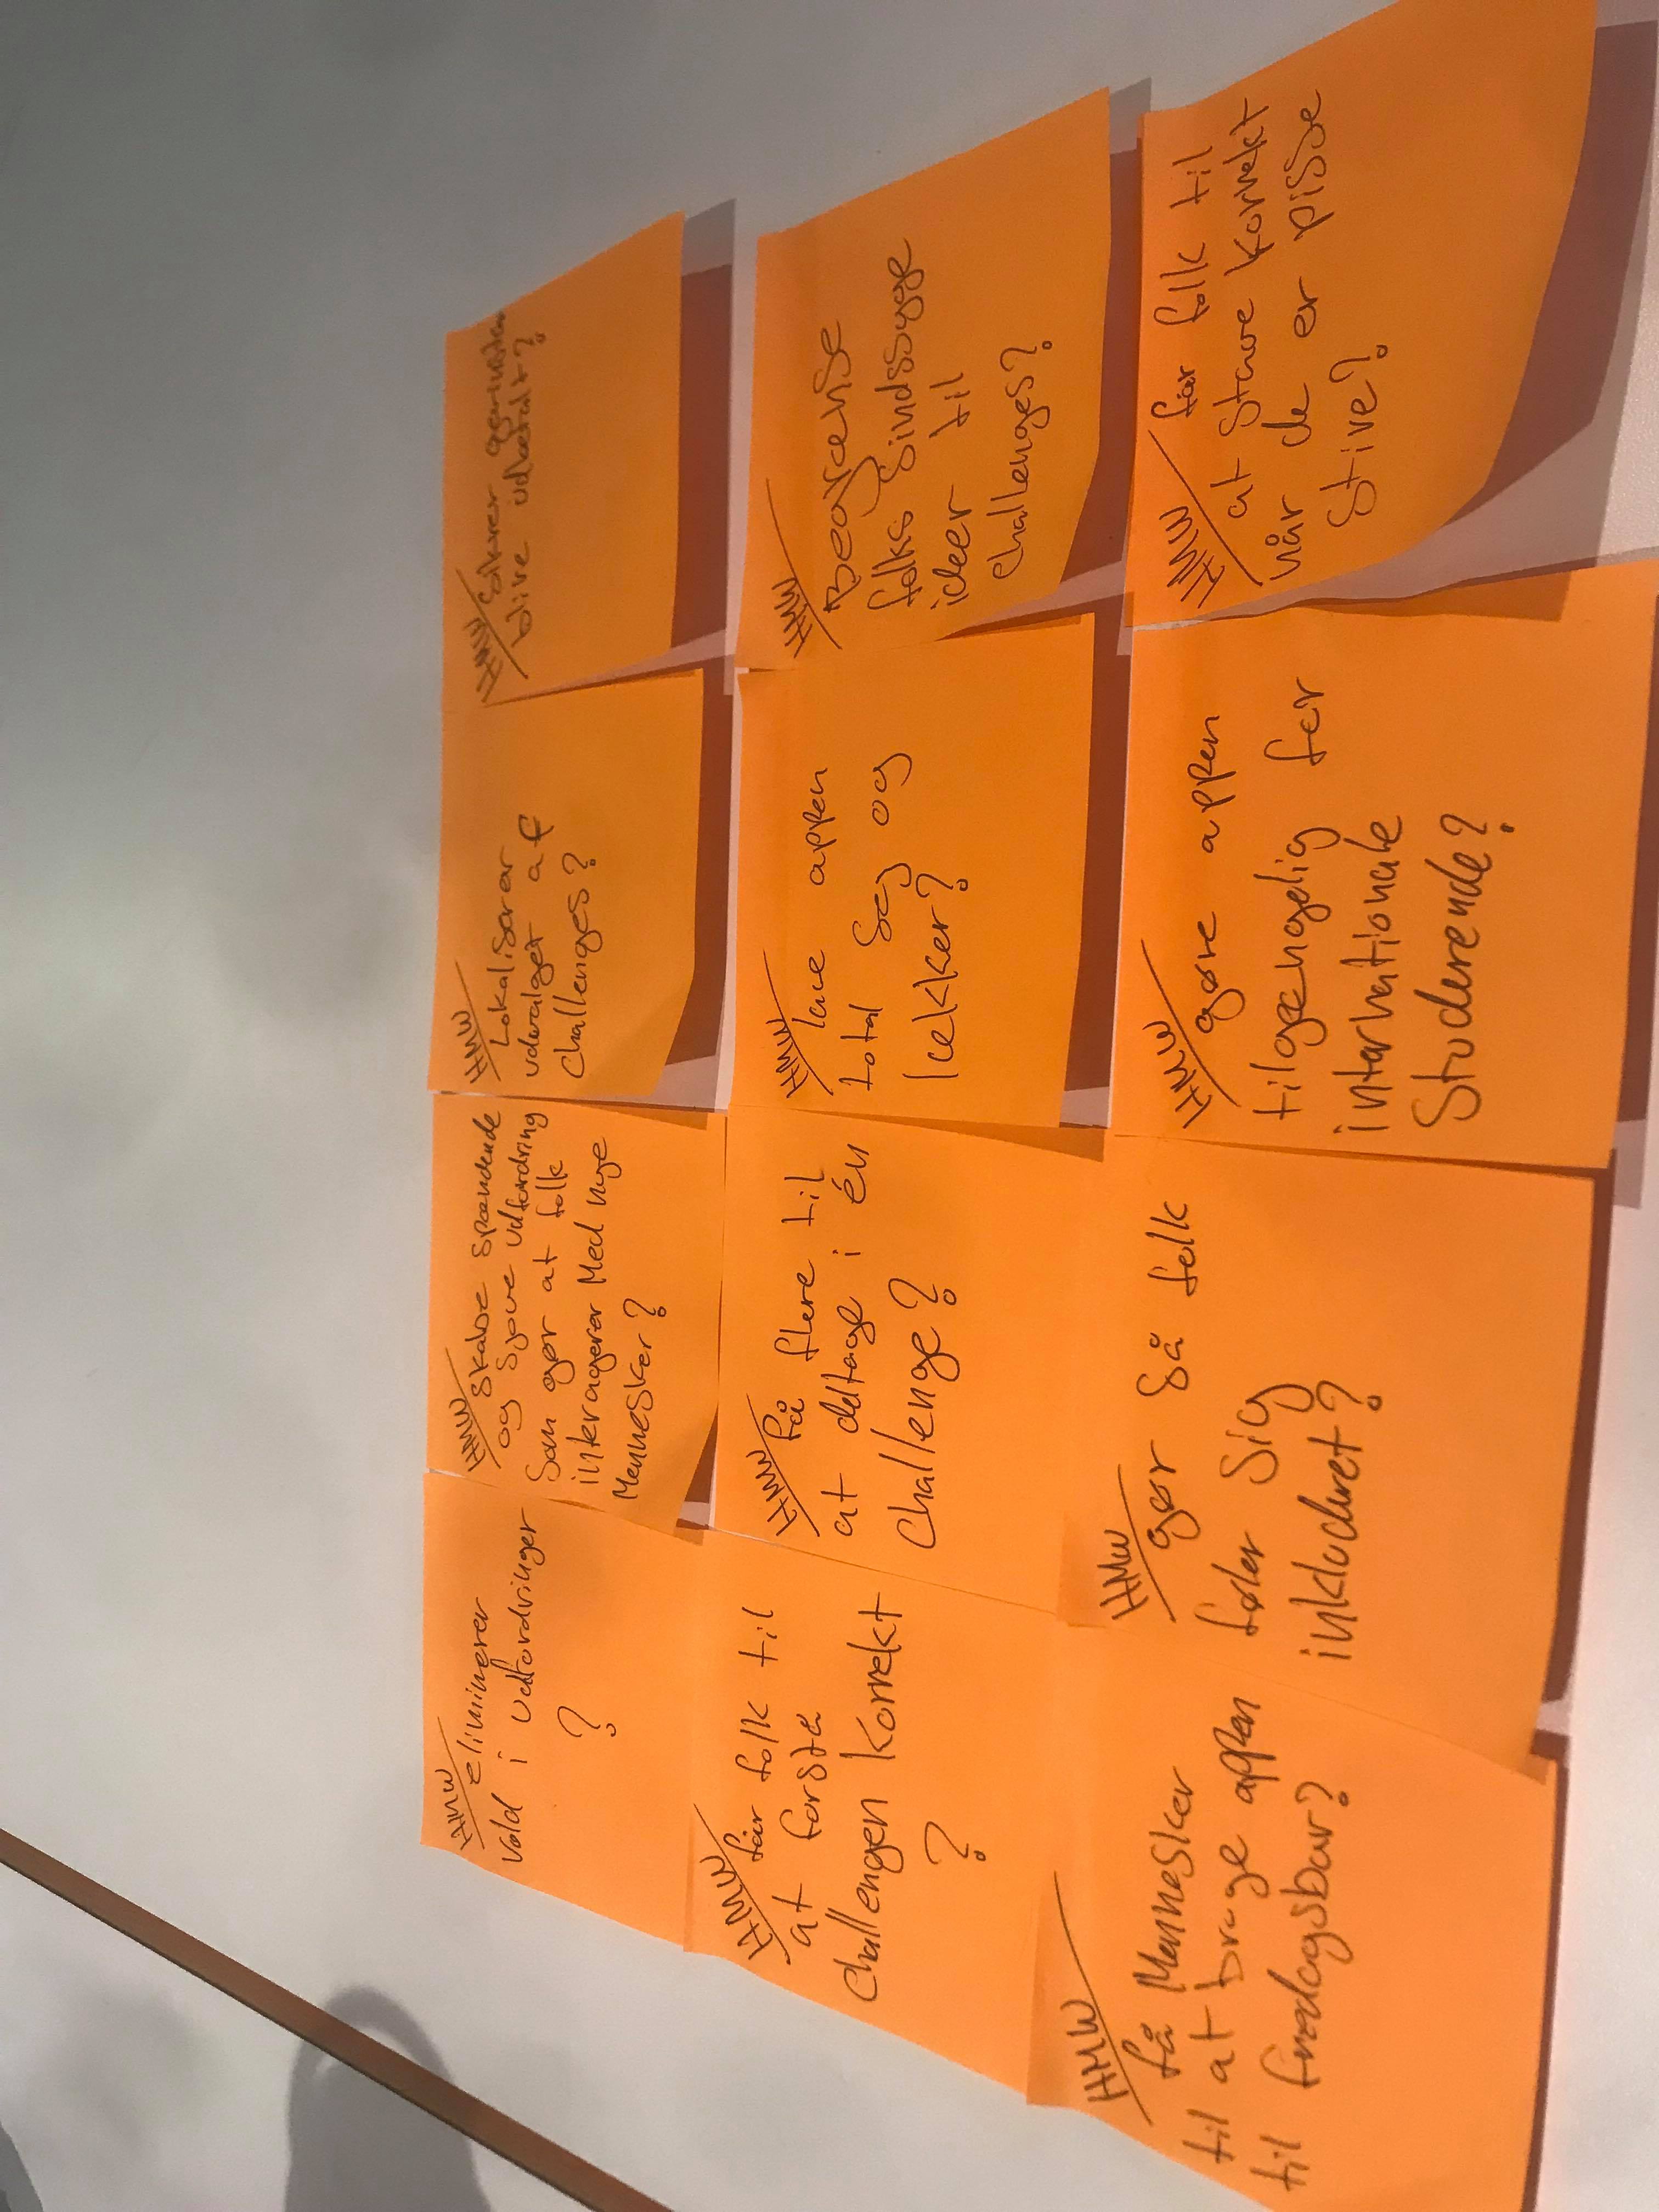 HMW
eliminerer
vold i udfordringer
?
HMW
skabe spændende
og sjove udfordring
som gør at folk
interagerer med nye
mennesker?
HMW
Lokaliserer
udvalget af
challenges?
HMW sikrer
blive udbetalt?
HMW
får folk til
at forstå
challengen korrekt
?
HMW få flere til
at deltage i én
challenge?
HMW
lave appen
total sej og
lækker?
HMW
Begrænse
folks sindssyge
ideer til
challenges?
HMW
få mennesker
til at bruge appen
til fredagsbar?
HMW
gør så folk
føler sig
inkluderet?
HMW
gøre appen
tilgængelig for
internationale
studerende?
HMW får folk til
at stave korrekt
når de er pisse
stive?